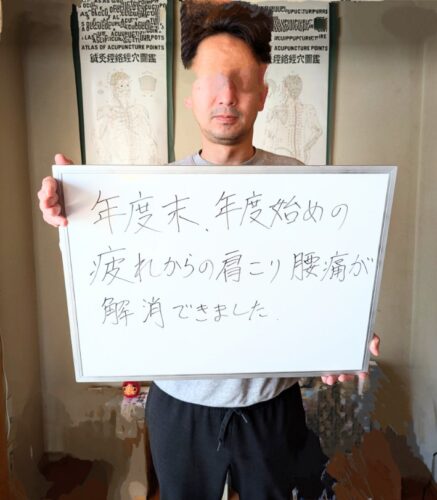 ATLAS OF ACUPUNCTURE POINTS
鍼灸經絡經穴圖鑑
ATLAS OF ACUPUNCTURE POINTS
鍼灸經絡經穴圖鑑
年度末、年度始めの
疲れからの肩こり腰痛が
解消できました.